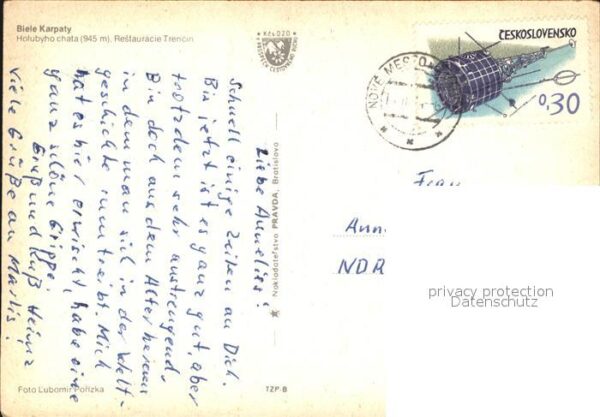 Biele Karpaty
Holubyho chata (945 m). Reštaurácie Trenčín
Kčs 0,20
ČESKOSLOVENSKO
0,30
NOVÉ MESTO
Liebe Annelies!
Schnell einige Zeilen an Dich.
Bis jetzt ist es ganz gut, aber
trotzdem sehr anstrengend
Bin doch aus dem Alter heraus
in dem man sich in der Welt-
geschichte rumtreibt. Mich
hat es hier erwischt, habe eine
ganz schöne Grippe.
Gruß und Kuß Heinz
Viele Grüße an Marlis!
Nakladateľstvo PRAVDA, Bratislava
Frau
Ann
NDR
privacy protection
Datenschutz
Foto Ľubomír Pořízka
TZP-8